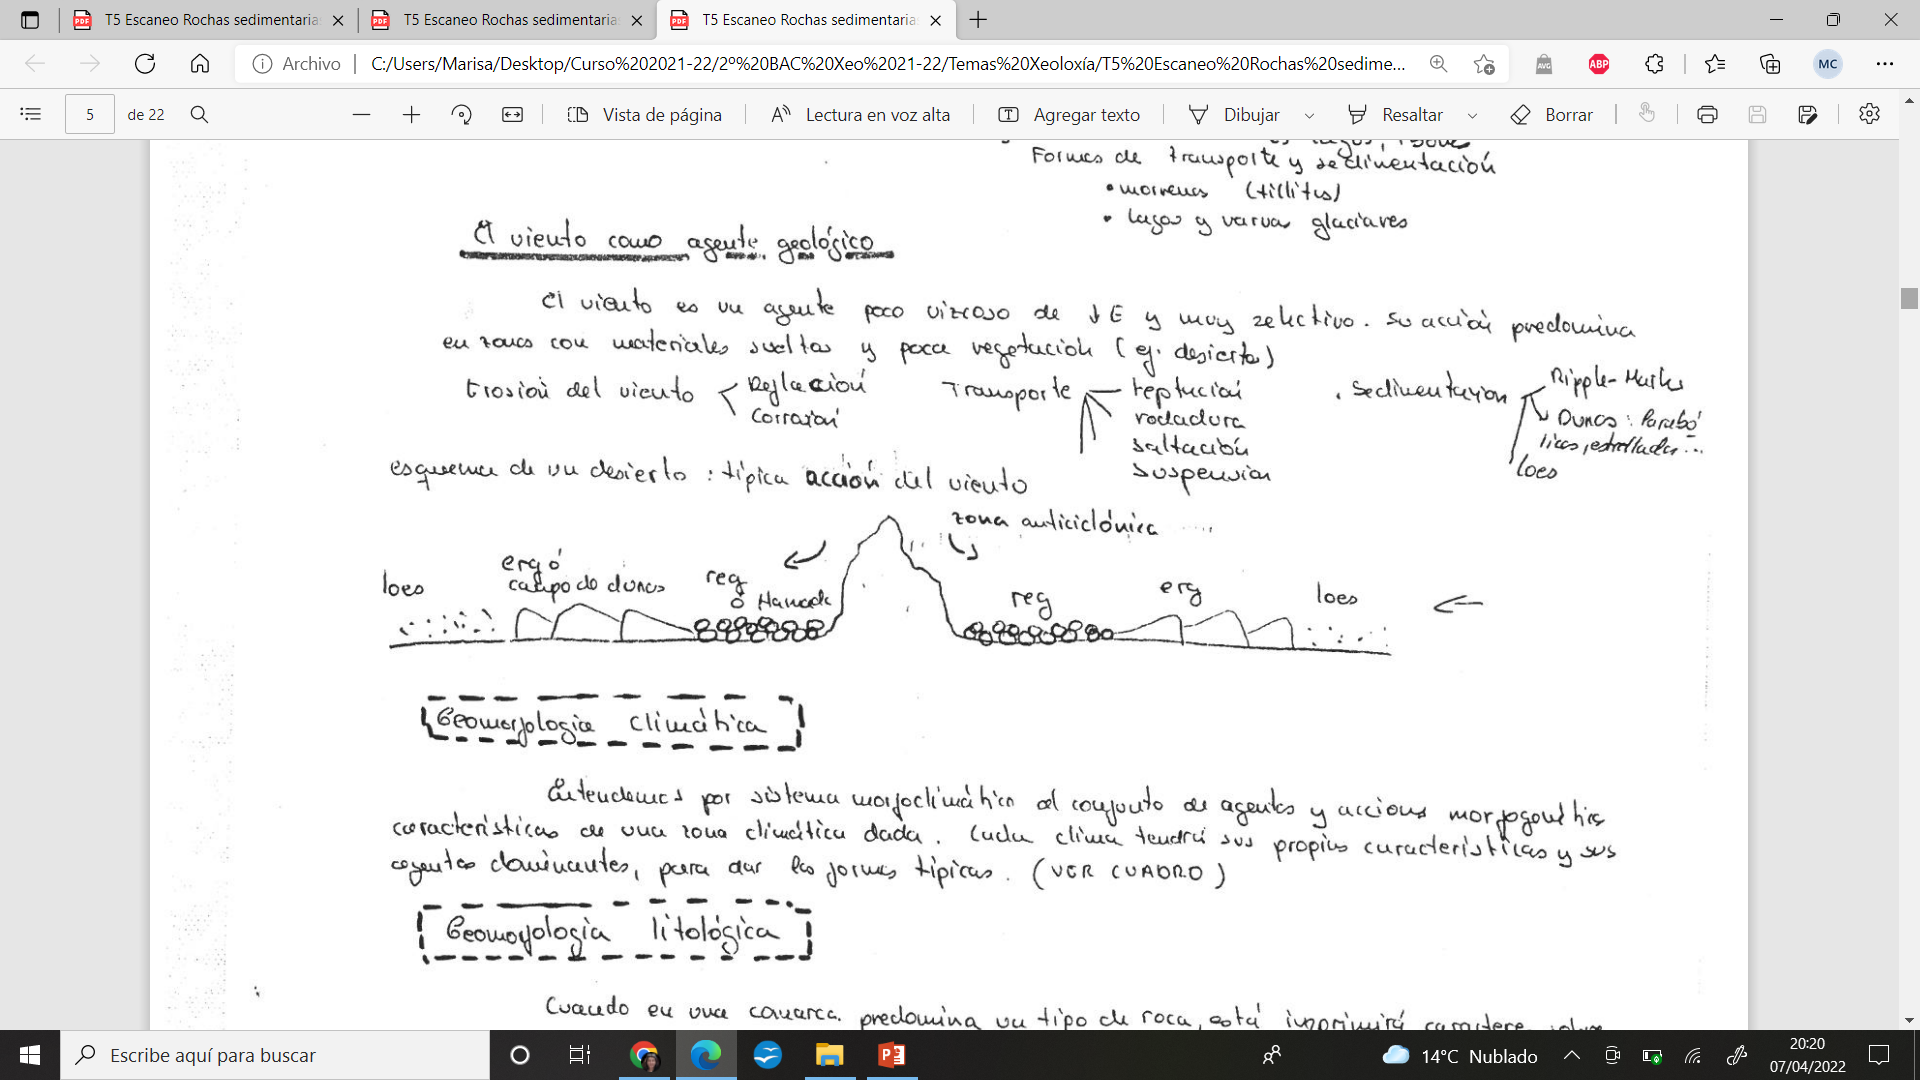 T5 Escaneo Rochas sedimentaria
T5 Escaneo Rochas sedimentaria
T5 Escaneo Rochas sedimentaria
Archivo
C:/Users/Marisa/Desktop/Curso%202021-22/2º%20BAC%20Xeo%2021-22/Temas%20Xeoloxía/T5%20Escaneo%20Rochas%20sedime...
AVG
ABP
MC
5 de 22
Vista de página
Lectura en voz alta
Agregar texto
Dibujar
Resaltar
Borrar
Formas de transporte y sedimentación
• morrenas (tillitas)
• lagos y varvas glaciares
El viento como agente geológico
El viento es un agente poco vizcoso de ↓E y muy selectivo. Su acción predomina
en zonas con materiales sueltos y poca vegetación (ej. desierto)
Erosión del viento
Deflación
Corrasión
Transporte
reptación
rodadura
saltación
suspensión
. Sedimentación
Ripple-Marks
Dunas: Parabó
licas, estrelladas...
loes
esquema de un desierto : típica acción del viento
zona anticiclónica
loes
ergó
campo de dunas
reg
o Hamada
reg
erg
loes
Geomorfologia climática
Entendemos por sistema morfoclimático al conjunto de agentes y acciones morfogenéticas
características de una zona climática dada. Cada clima tendrá sus propias características y sus
agentes dominantes, para dar las formas típicas. (VER CUADRO)
Geomorfologia litológica
Cuando en una comarca predomina un tipo de roca, está imprimirá caracteres sobre
Escribe aquí para buscar
14°C Nublado
20:20
07/04/2022